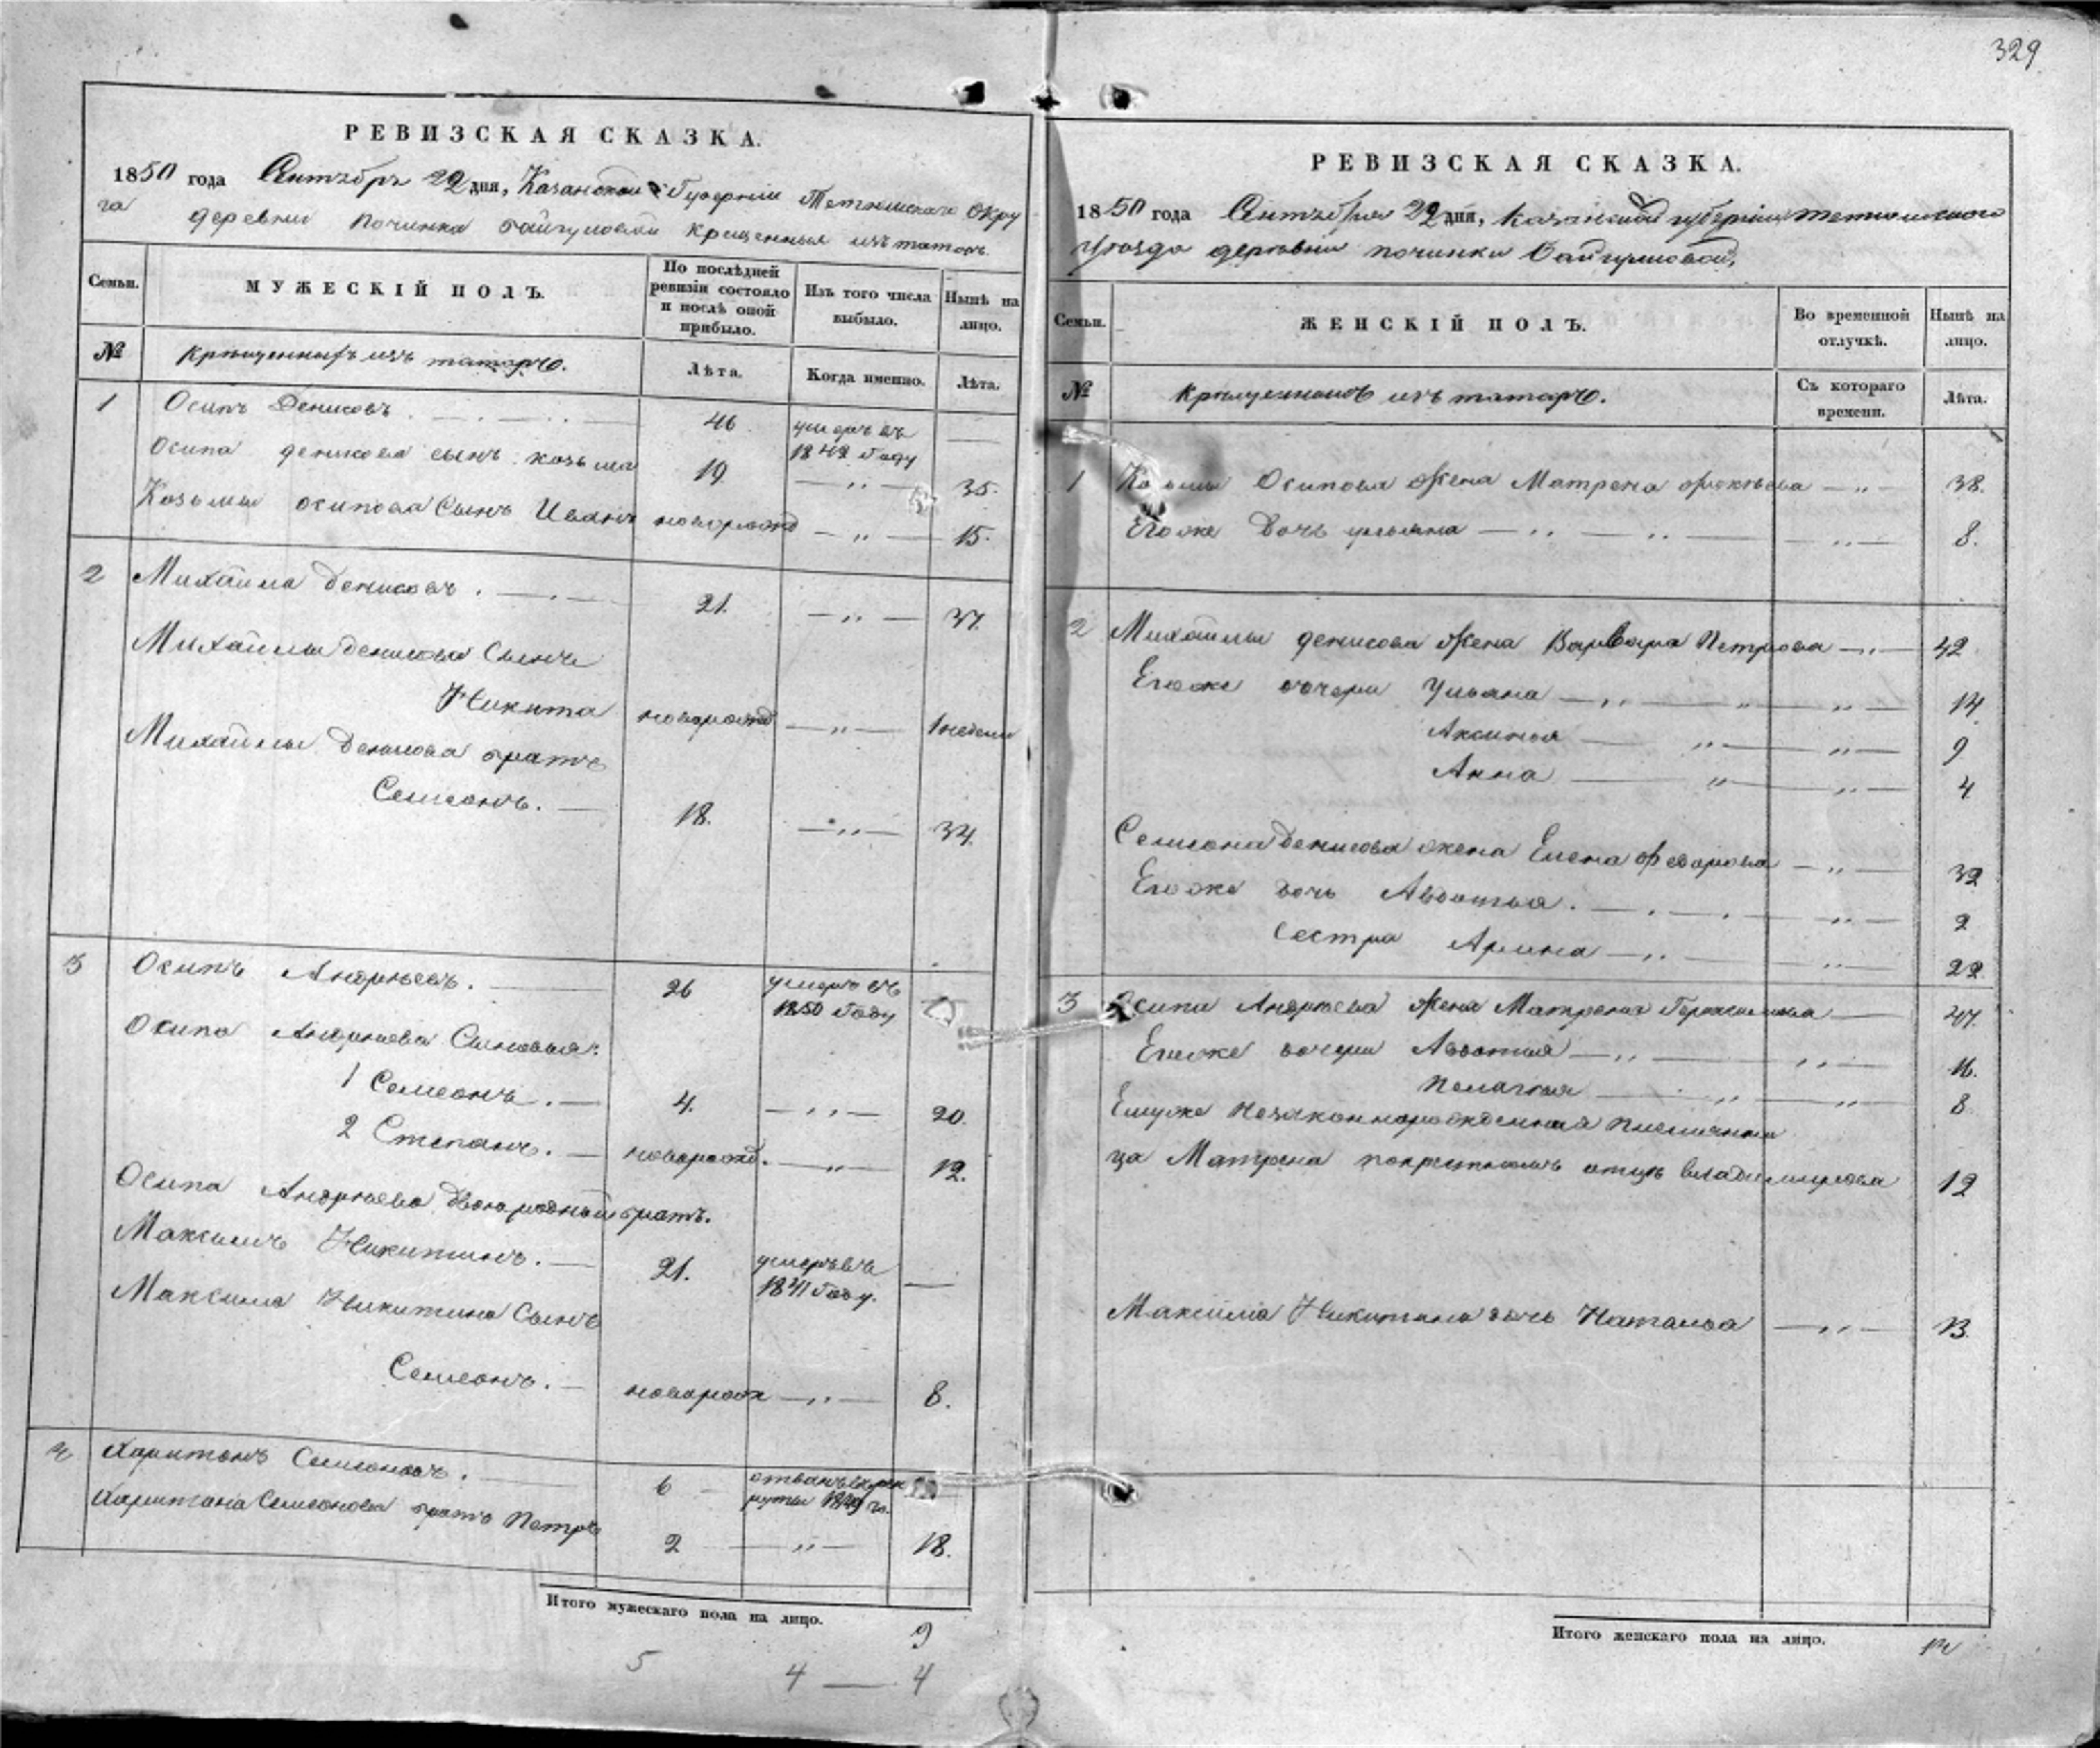 329
РЕВИЗСКАЯ СКАЗКА.
1850 года Сентябрь 22 дня, Казанской Губернiи Тетюшскаго Окру
га деревни Починка Байгуловой крещенныя изъ татаръ
Семьи.
МУЖЕСКІЙ ПОЛЪ.
По послѣдней ревизіи состояло и послѣ оной прибыло.
Изъ того числа выбыло.
Нынѣ на лицо.
№
крещенныхъ изъ татаръ.
Лѣта.
Когда именно.
Лѣта.
1 Осипъ Денисовъ. 46 умеръ въ 1842 Году
Осипа денисова сынъ козьма 19 35.
Козьмы осипова Сынъ Иванъ новорожд 15.
2 Михайла Денисовъ. 21. 37.
Михайлы денисова Сынъ
Никита новорожд 1 недели
Михайлы Денисова братъ
Семеонъ. 18. 34.
3 Осипъ Андреевъ. 26 умеръ въ 1850 Году
Осипа Андреева Сыновья:
1 Семеонъ. 4. 20.
2 Степанъ. новорожд. 12.
Осипа Андреева двоюродный братъ.
Максимъ Никитинъ. 21. умеръ въ 1841 Году.
Максима Никитина Сынъ
Семеонъ. новорожд 8.
4 Харитонъ Семеоновъ. 6 отданъ въ рекруты 1849 го.
Харитона Семеонова братъ Петръ 2 18.
Итого мужескаго пола на лицо. 9
5 4 — 4
РЕВИЗСКАЯ СКАЗКА.
1850 года Сентября 22 дня, казанской губернiи тетюшскаго
Уѣзда деревни починки Байгуловой,
Семьи.
ЖЕНСКІЙ ПОЛЪ.
Во временной отлучкѣ.
Нынѣ на лицо.
№
крещенныхъ изъ татаръ.
Съ котораго времени.
Лѣта.
1 Козьмы Осипова Жена Матрена 38.
Егоже Дочь ульяна 8.
2 Михайлы денисова Жена Варвара Петрова 42
Егоже дочери Ульяна 14
Аксинья 9
Анна 4
Семеона Денисова жена Елена федорова 32
Егоже дочь Авдотья. 2
Сестра Арина 22
3 Осипа Андреева Жена Матрена Герасимова 47.
Егоже дочери Авдотья 16.
Пелагея 8
Емуже Незаконнорожденная племянни
ца Матрена по крестномъ отцѣ владимирова 12
Максима Никитина дочь Наталья 13.
Итого женскаго пола на лицо. 14